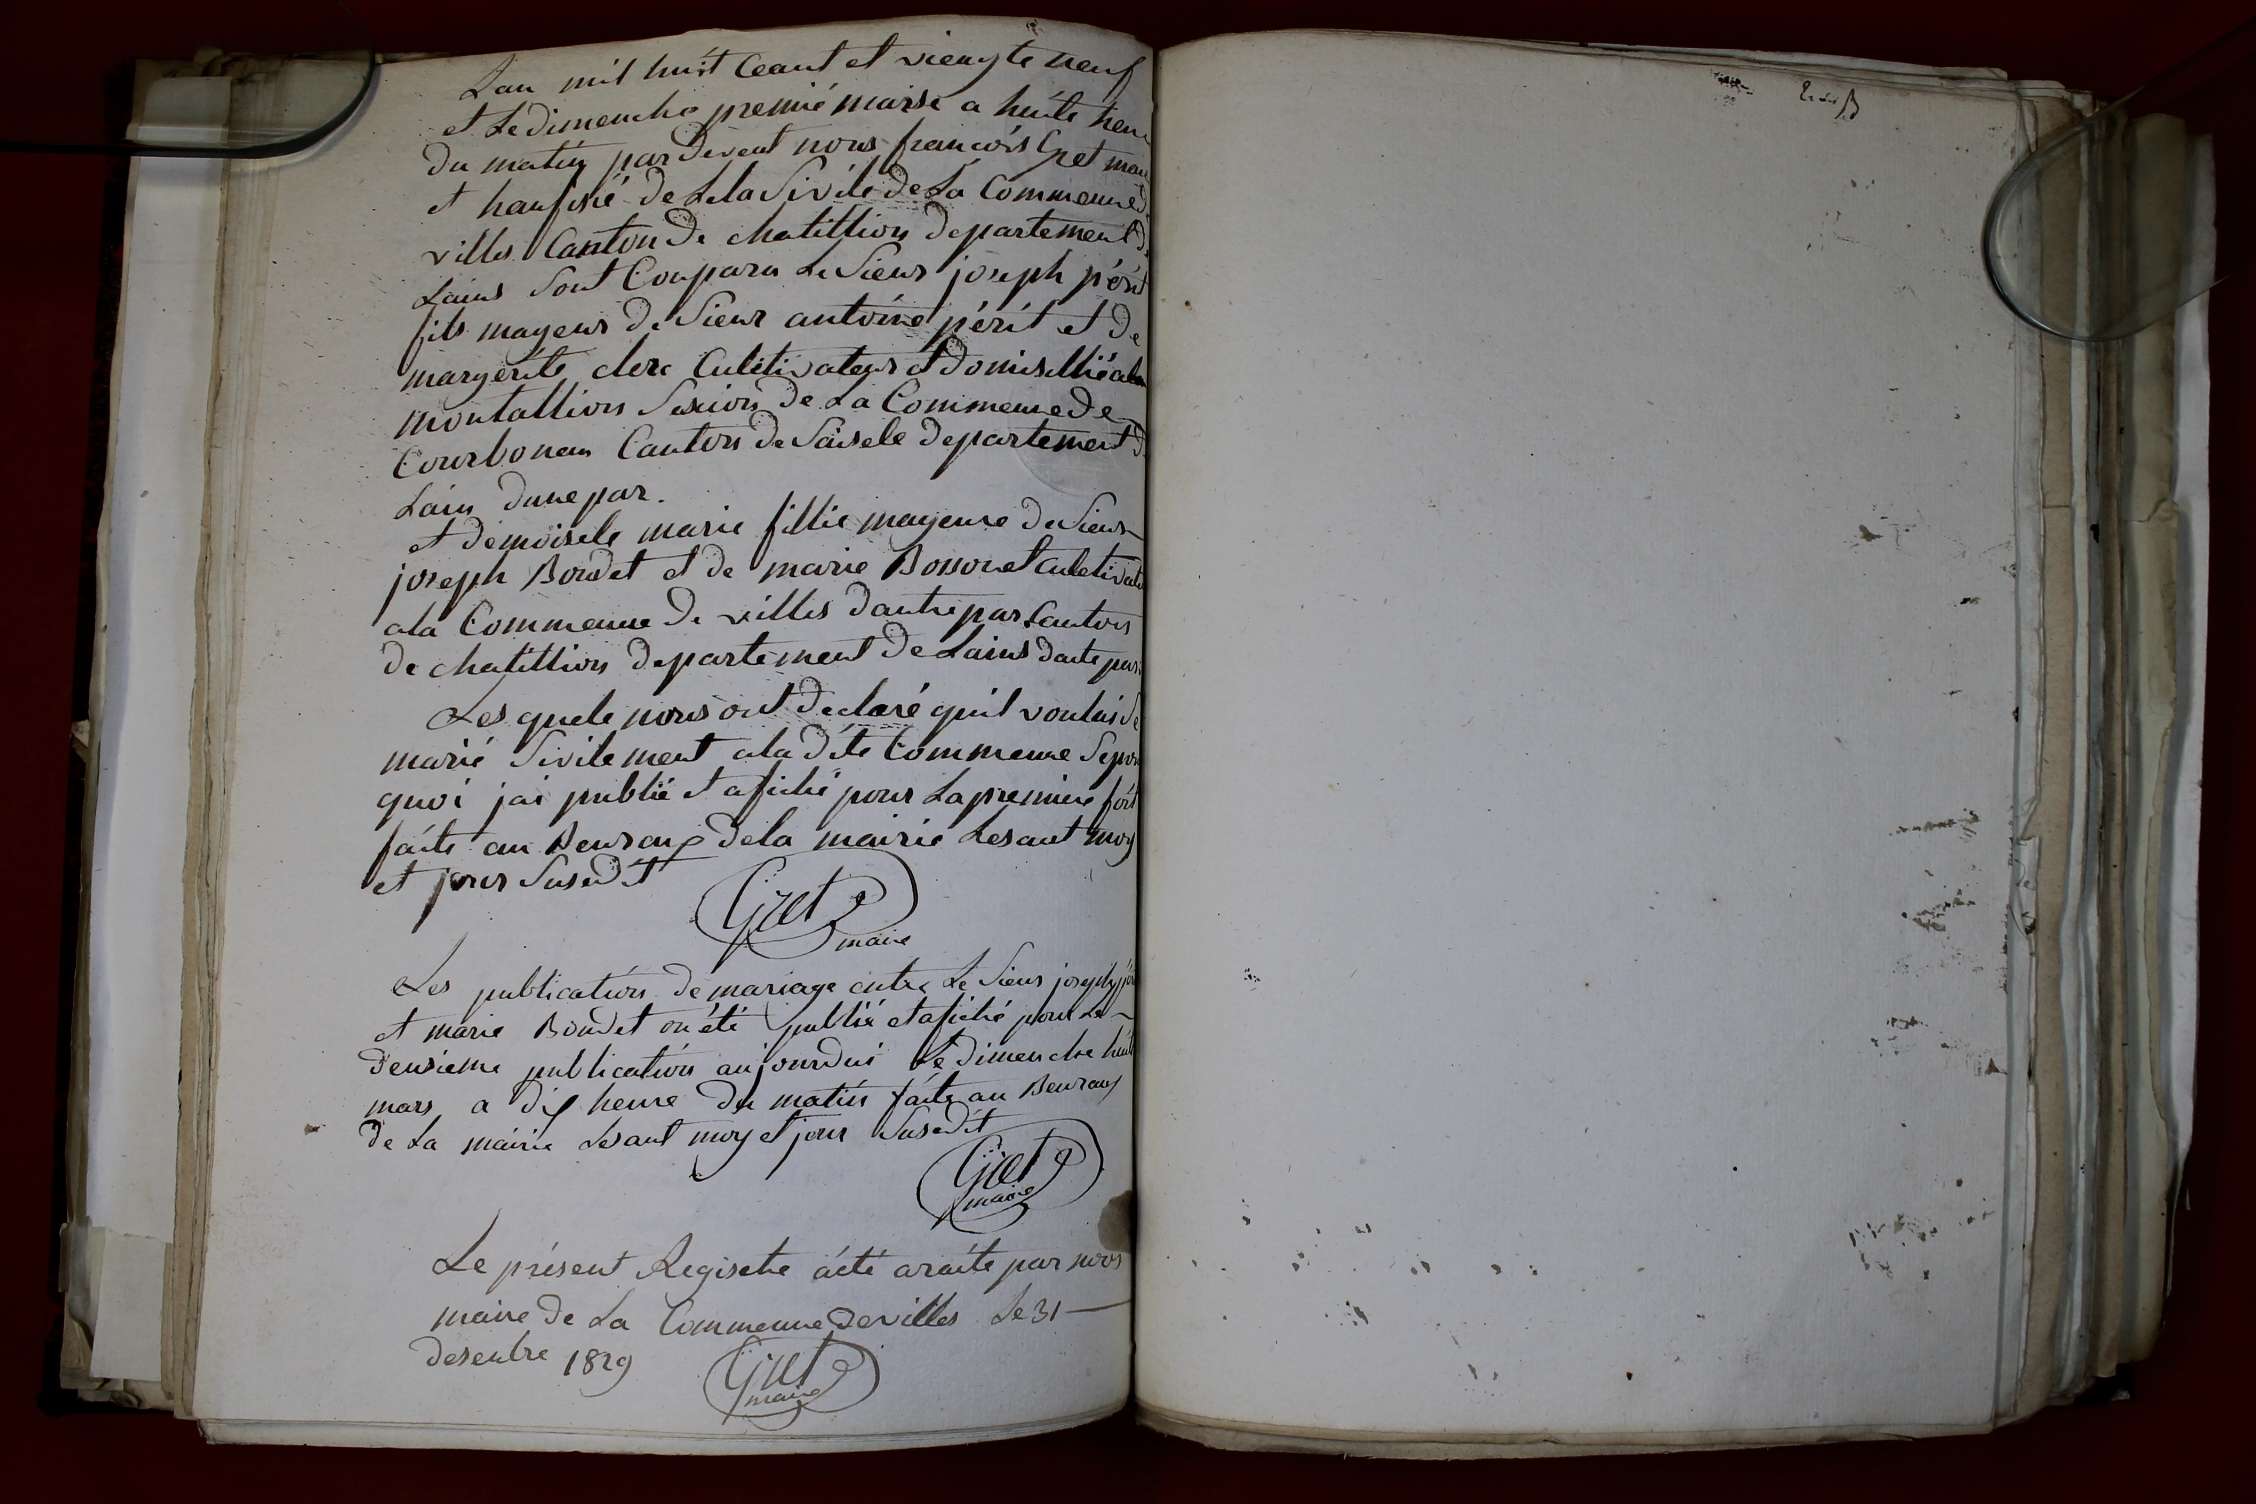 Lan mil huit Ceant et viengte neuf
et Le dimenche premié marse a huite heur
du matin par devent nous francois Gret maire
et hanfisié de Leta Sivile de La Commeune d
villes Canton de chatillion departement d
Lains Sont Conparu Le Sieur joseph périt
fils mageur de Sieur antoine périt et de
margerite clerc Culetivateur et domisellié a
montallion Sexion de La Commeune de
Courbonau Canton de Saisele departement d
Lain dune par.
et demoisele marie fillie mageure de Sieur
joseph Boudet et de marie Bossonet Culetivate
ala Commeune de villes dautre par Canton
de chatillion departement de Lains daute par
Les quele nous ont declaré quil voulai Se
marié Sivilement ala dite Commeune Sepour
quoi jai publié et afiché pour La premiere foit
faite au Beuraux dela mairie Lesant moy
et jour Susedit
Gret
maire
Les publication de mariage entre Le Sieur joseph
et marie Boudet on été publié et afiché pour La
deusieme publication aujourdui Le dimenche huit
mars a dix heure du matin faite au Beuraux
de La mairie Lesant moy et jour Susedit
Gret
maire
Le présent Registre áété araité par nous
maire de La Commeune de villes Le 31
desenbre 1829
Gret
maire